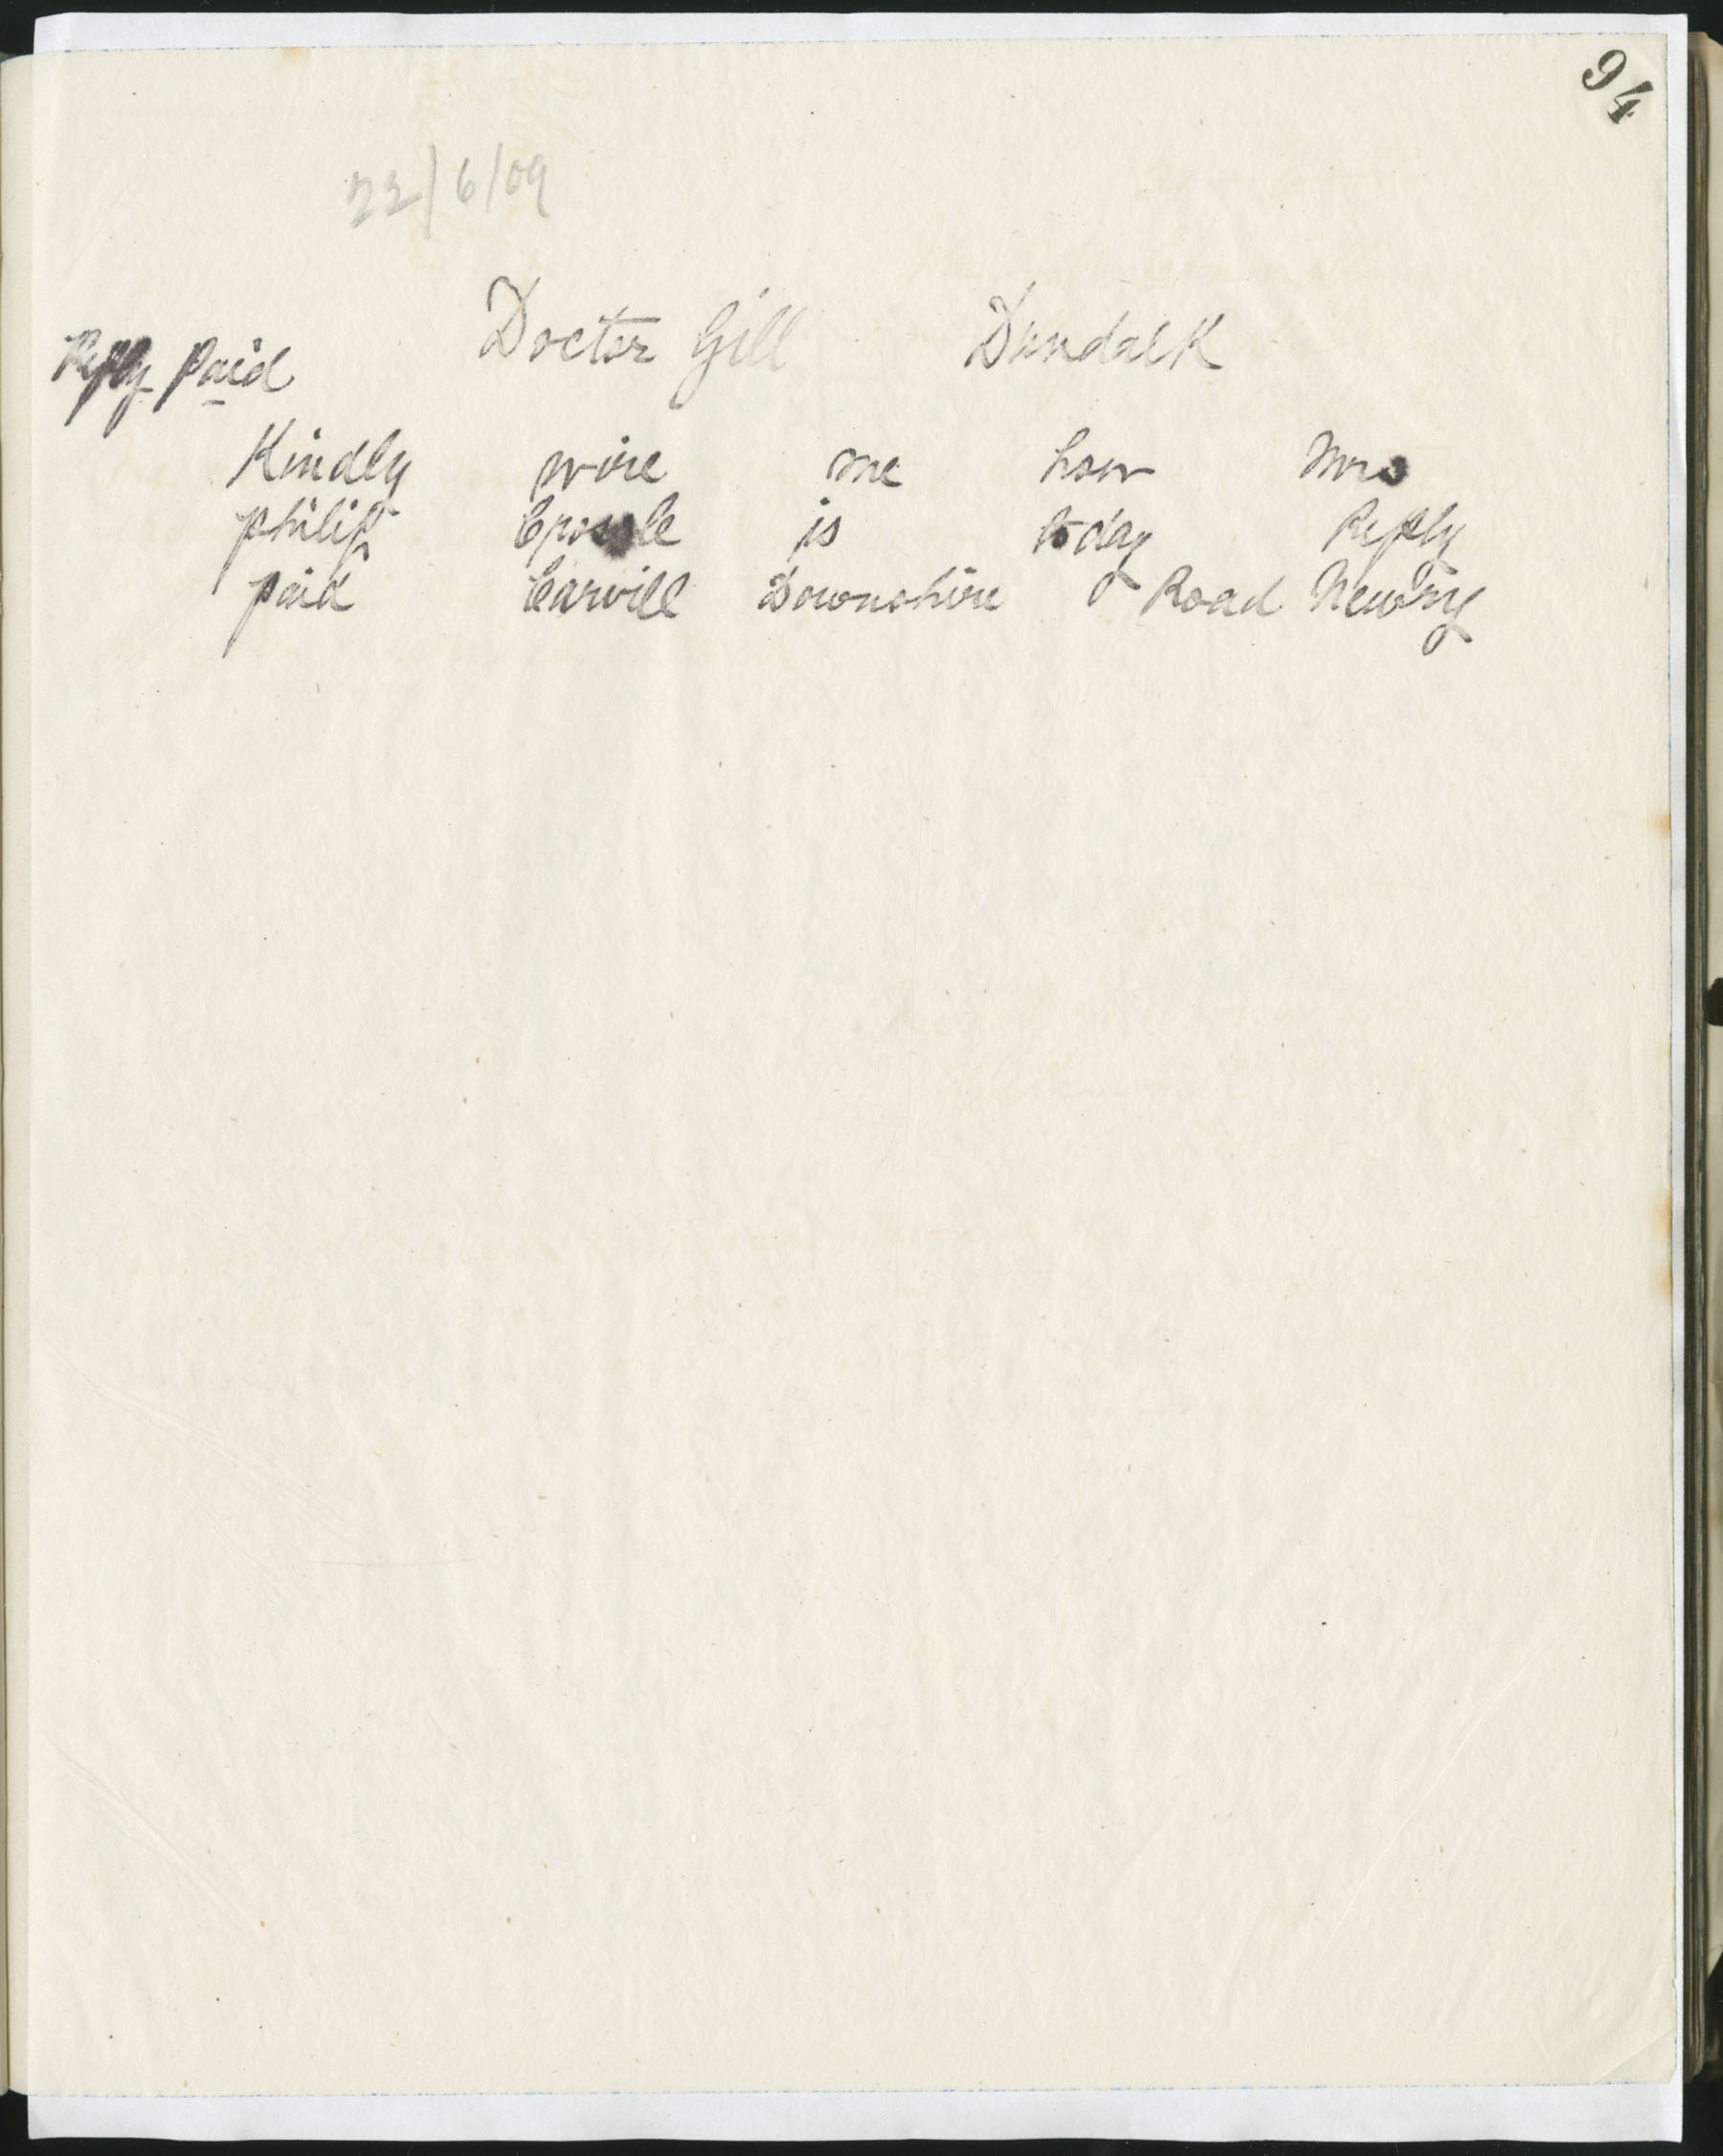 94
22/6/09
Doctor Gill Dundalk
Reply Paid
Kindly wire me how Mrs
Philip is today Reply
paid Carvill Downshire Road Newry